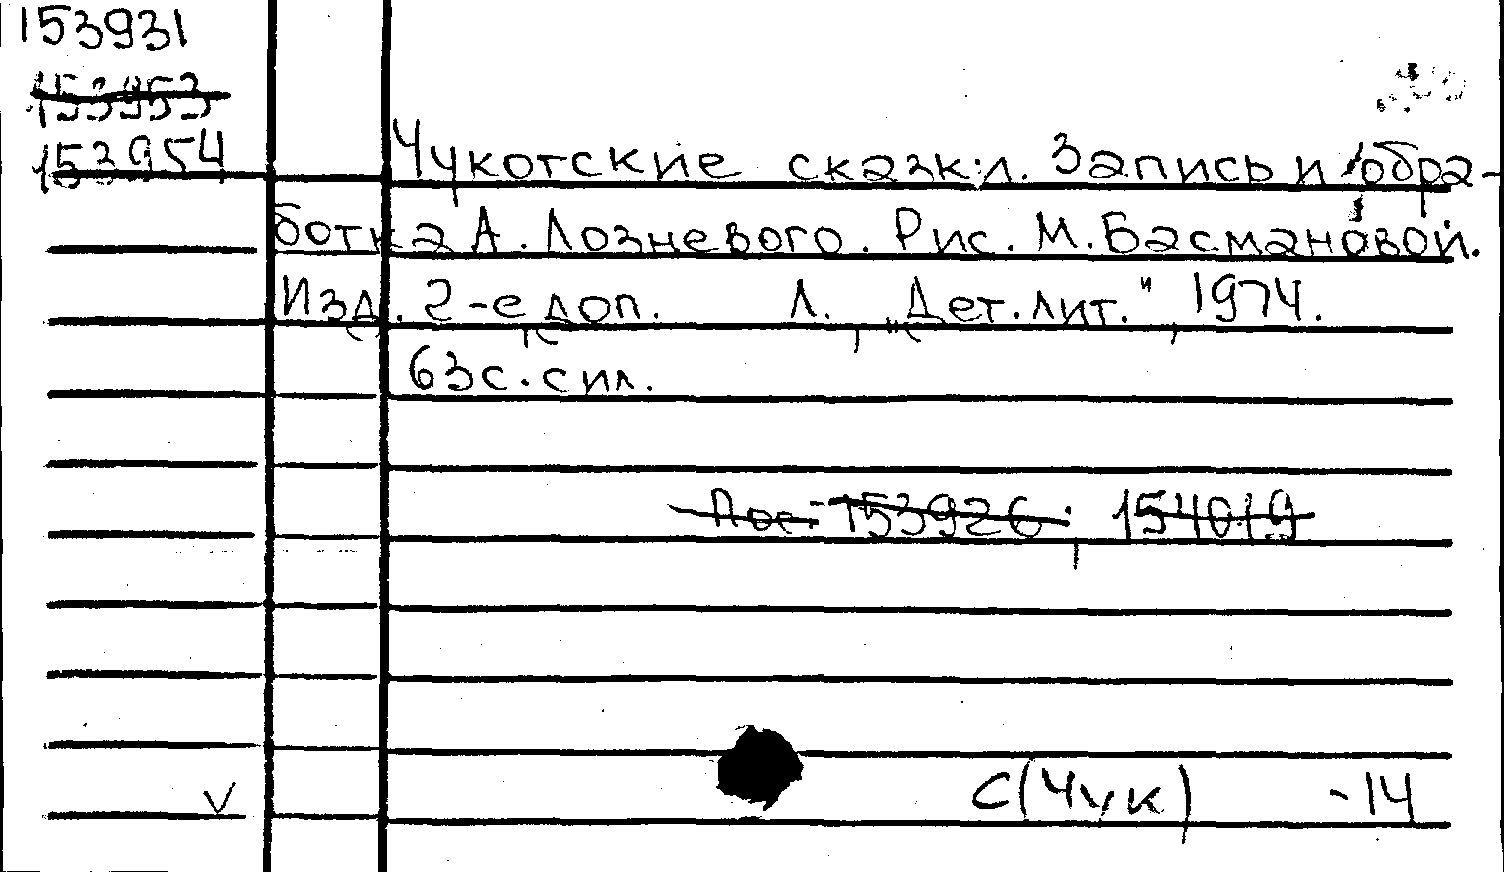 153931
153953
153954
Чукотские сказки. Запись и обра-
ботка А. Лозневого. Рис. М. Басмановой.
Изд. 2-е, доп. Л., „Дет. лит.", 1974.
63с. с ил.
Пос. - 153926; 154019
С(Чук) -14